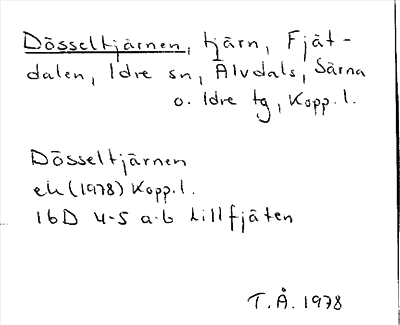 Dösseltjärnen, tjärn, Fjät-
dalen, Idre sn, Älvdals, Särna
o. Idre tg, Kopp.l.
Dösseltjärnen
ek (1978) Kopp.l.
16D 4-5 a-b Lillfjäten
T.Å. 1978